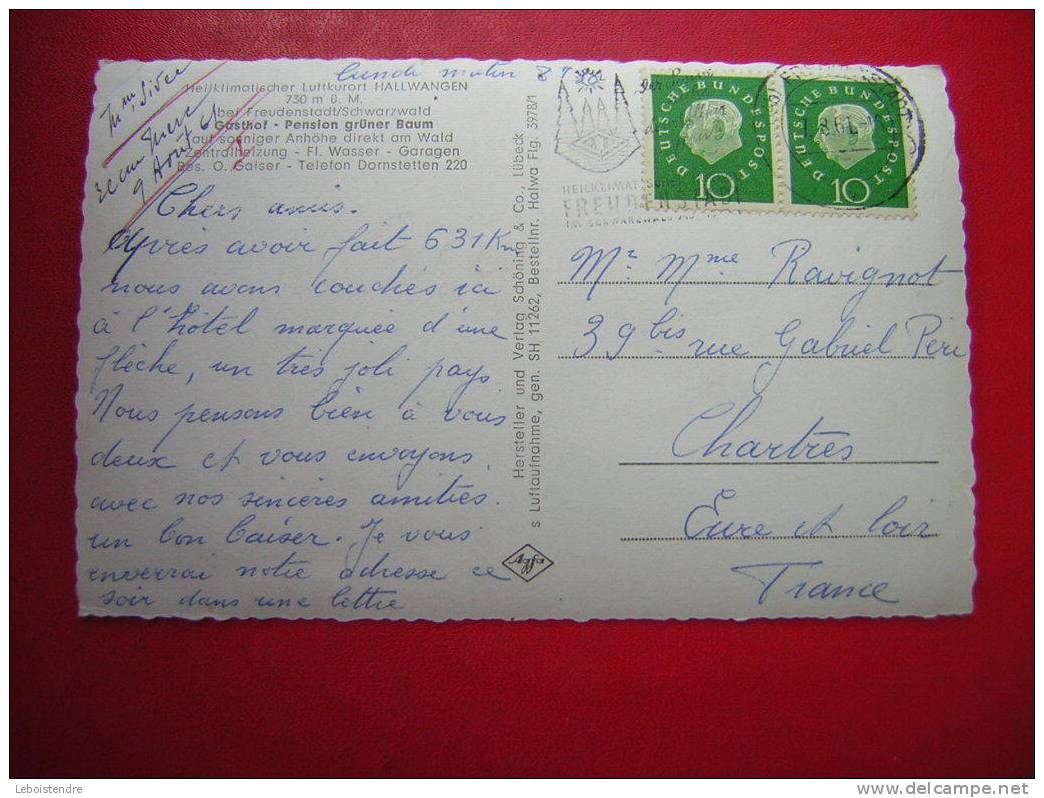 lundi matin 8 h
Heilklimatischer Luftkurort HALLWANGEN
730 m ü. M.
bei Freudenstadt/Schwarzwald
Gasthof - Pension grüner Baum
auf sonniger Anhöhe direkt am Wald
Zentralheizung - Fl. Wasser - Garagen
Bes. O. Gaiser - Telefon Dornstetten 220
9 Aout 61
Chers amis.
Après avoir fait 631 Km
nous avons couchés ici
à l'hôtel marquée d'une
flèche, un très joli pays.
Nous pensons bien à vous
deux et vous envoyons
avec nos sincères amitiés.
un bon baiser. Je vous
enverrai notre adresse ce
soir dans une lettre
Hersteller und Verlag Schöning & Co., Lübeck
s Luftaufnahme, gen. SH 11262, Bestellnr. Halwa Flg. 3978/1
Agfa
HEILKLIMATISCHE
FREUDENSTADT
IM SCHWARZWALD
DEUTSCHE BUNDESPOST
10
DEUTSCHE BUNDESPOST
10
Mr Mme Ravignot
39 bis rue Gabriel Péri
Chartres
Eure et Loir
France
Leboistendre
delcampe.net